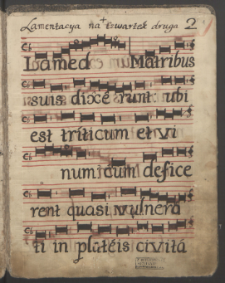 Lamentacya na czwartek druga 2
Lamed Matribus
suis dixe runt ubi
est triticum et vi
num cum defice
rent quasi vulnera
ti in plateis civitá